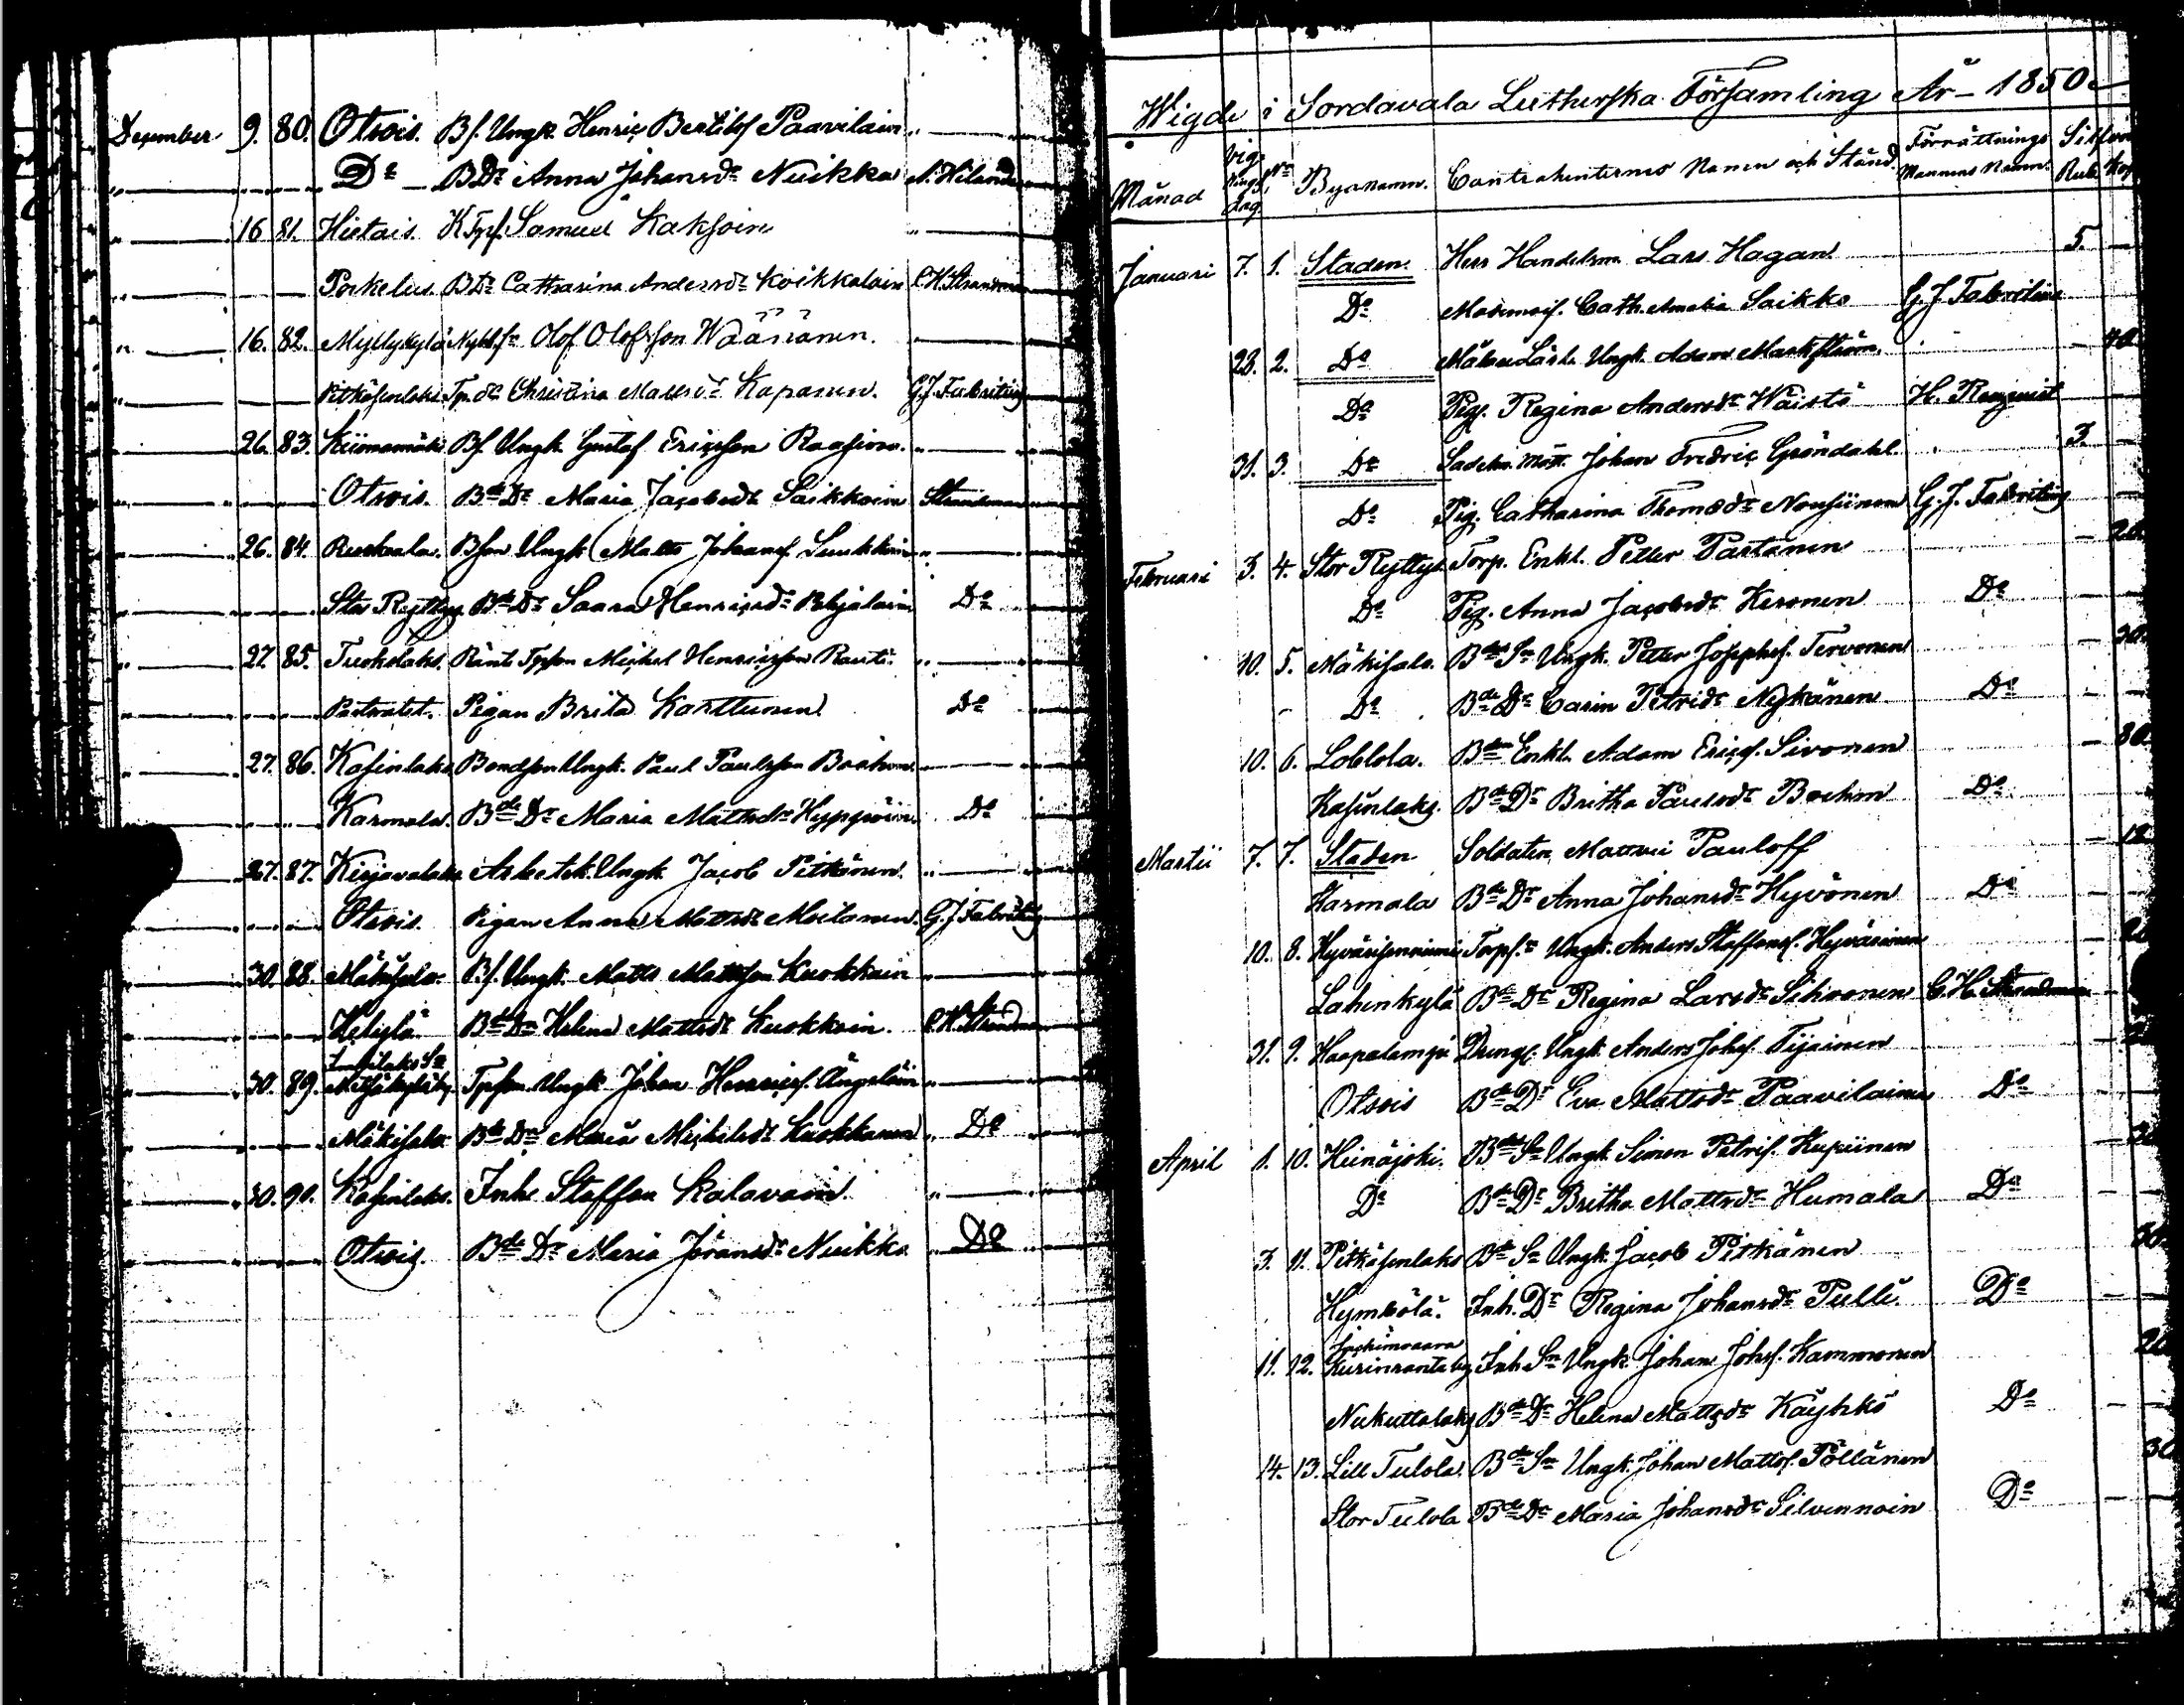 December 9. 80. Otsois. Bs. Ungk. Henric Bertilss Paavilain
Do BDr Anna Johansdr Nuikka
16 81. Hietais. K Tpf. Samuel Kaksoin
BDr Catharina Andersdr Koikkalain C H Strandman
16. 82. Myllykylä Olof Olofsson Wäänänen.
Pitkäsenlaks. Tp. dr Christina Mattsdr Kaparen. G. J. Fabritius
26. 83. Kiimamäki Bs. Ungk. Gustaf Ericsson Raasina.
Otsois. Bde Dr Maria Jacobsdr Saikkoin Strandman
26. 84. Ruskeala. Bson Ungk Matts Johanss. Suikkain
Stor Ryttys. Bde Dr Saara Henricsdr Pohjalain Do
27. 85. Tuokslaks. Tpson Michel Henricsson Rauti.
Pigan Brita Karttunen Do
27. 86. Kasinlaks Bondson Ungk. Paul Paulsson Boehm
Karmala. Bde Dr Maria Mattsdr Hyppöin Do
27. 87. Kirjavalaks Arbetsk. Ungk Jacob Pitkänen.
Otsois. Pigan Anna Mattsdr Moilanen. G. J. Fabritius
30. 88. Mäkisalo. Bs. Ungk. Matts Mattsson Kuokkain
Helylä Bde Dr Helena Mattsdr Kuokkain. C. H. Strandman
30. 89. Tpson Ungk Johan Henricss. Ängeläin
Mäkisalo. Bde Dr Maria Michelsdr Kuokkanen Do
30. 90. Kasinlaks. Inh. Staffan Kalavain.
Otsois. Bde Dr Maria Jöransdr Nuikka Do
Wigde i Sordavala Lutherska Församling År 1850
Månad Vignings dag No Byanamn. Contrahenternes Namn och Stånd. Förrättnings Mannens Namn. Silfver Rub. Kop
Januari 7. 1. Staden. Herr Handelsm. Lars Hagan. 5.
Do Mademois. Cath. Amalia Saikko G. J. Fabritius
28. 2. Do Ungk. Adam Markström. 40
Do Pig. Regina Andersdr Wäistö H. Renqvist
31. 3. Do Johan Fredric Gröndahl. 3.
Do Pig. Catharina Thomasdr Nousiinen G. J. Fabritius
Februari 3. 4. Stor Ryttys Torp. Enkl. Petter Partanen 20.
Do Pig. Anna Jacobsdr Keronen Do
10. 5. Mäkisalo. Bdes Sn Ungk. Petter Josephss. Tervonen 30.
Do Bde Dr Carin Petrisdr Nykänen Do
10. 6. Loblola. Bden Enkl. Adam Ericss. Sivonen 80.
Kasinlaks. Bde Dr Britha Paulsdr Boehm Do
Martii 7. 7. Staden Soldaten Mattvei Pauloff 12
Karmala Bde Dr Anna Johansdr Hyvönen Do
10. 8. Hyvärisenniemi Torps. Ungk. Anders Staffanss. Hyvärinen
Lahenkylä Bde Dr Regina Larsdr Sihvonen C. H. Strandman
31. 9. Haapalampi Dreng. Ungk. Anders Johss. Tijainen
Otsois Bde Dr Eva Mattsdr Paavilainen Do
April 1. 10. Heinäjoki. Bdes Sn Ungk Simon Petriss. Kupiinen
Do Bde Dr Britha Mattsdr Humala Do
3. 11. Pitkäsenlaks Bde Sn Ungk. Jacob Pitkänen 30
Hympölä. Inh. Dr Regina Johansdr Pulli. Do
Jochimvaara
11. 12. Kurinranta by Inh Sn Ungk. Johan Johss. Kammonen 20
Nukuttalaks Bde Dr Helena Mattsdr Käyhkö Do
14. 13. Lill Tulola. Bde Sn Ungk. Johan Mattss. Pöllänen 30
Stor Tulola Bde Dr Maria Johansdr Silvennoin Do